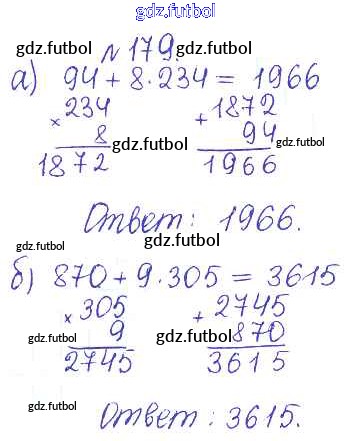 gdz.futbol
gdz.futbol № 179. gdz.futbol
а) 94 + 8 · 234 = 1966
× 234 + 1872
8 gdz.futbol 94 gdz.futbol
1872 1966
Ответ: 1966.
gdz.futbol gdz.futbol
б) 870 + 9 · 305 = 3615
× 305 + 2745
gdz.futbol 9 gdz.futbol 870
2745 3615
gdz.futbol gdz.futbol
Ответ: 3615.